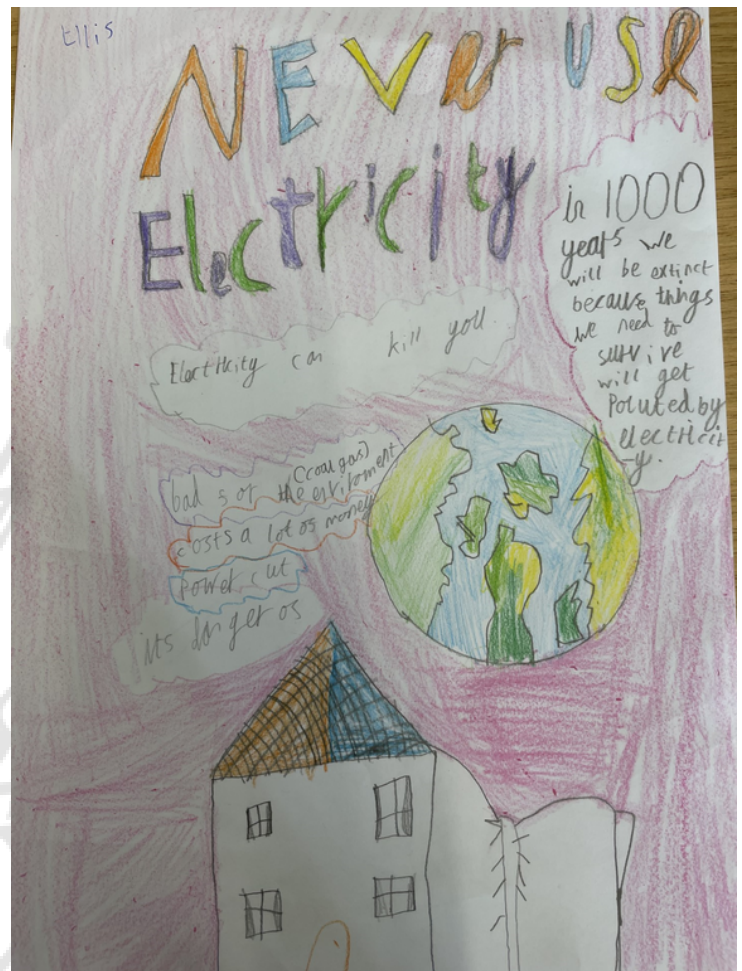 Ellis
NEVer USe
Electricity
in 1000
years we
will be extinct
because things
we need to
survive
will get
Poluted by
electricit
-y.
Electricity can kill you.
(coal gas)
bad for the enviroment
costs a lot of money
Power cut
its danger os